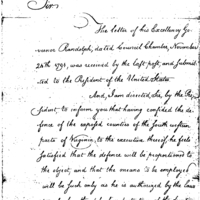 Sir,
The letter of his Excellency Go-
vernor Randolph, dated Council Chamber, November
24th 1791, was received by the last post, and submit-
ted to the President of the United States
And, I am directed, Sir, by the Pre
sident to inform you that having confided the de-
fence of the exposed counties of the South western
parts of Virginia, to the executive thereof, he feels
satisfied that the defence will be proportioned to
the object, and that the means to be employed
will be such only as he is authorized by the laws